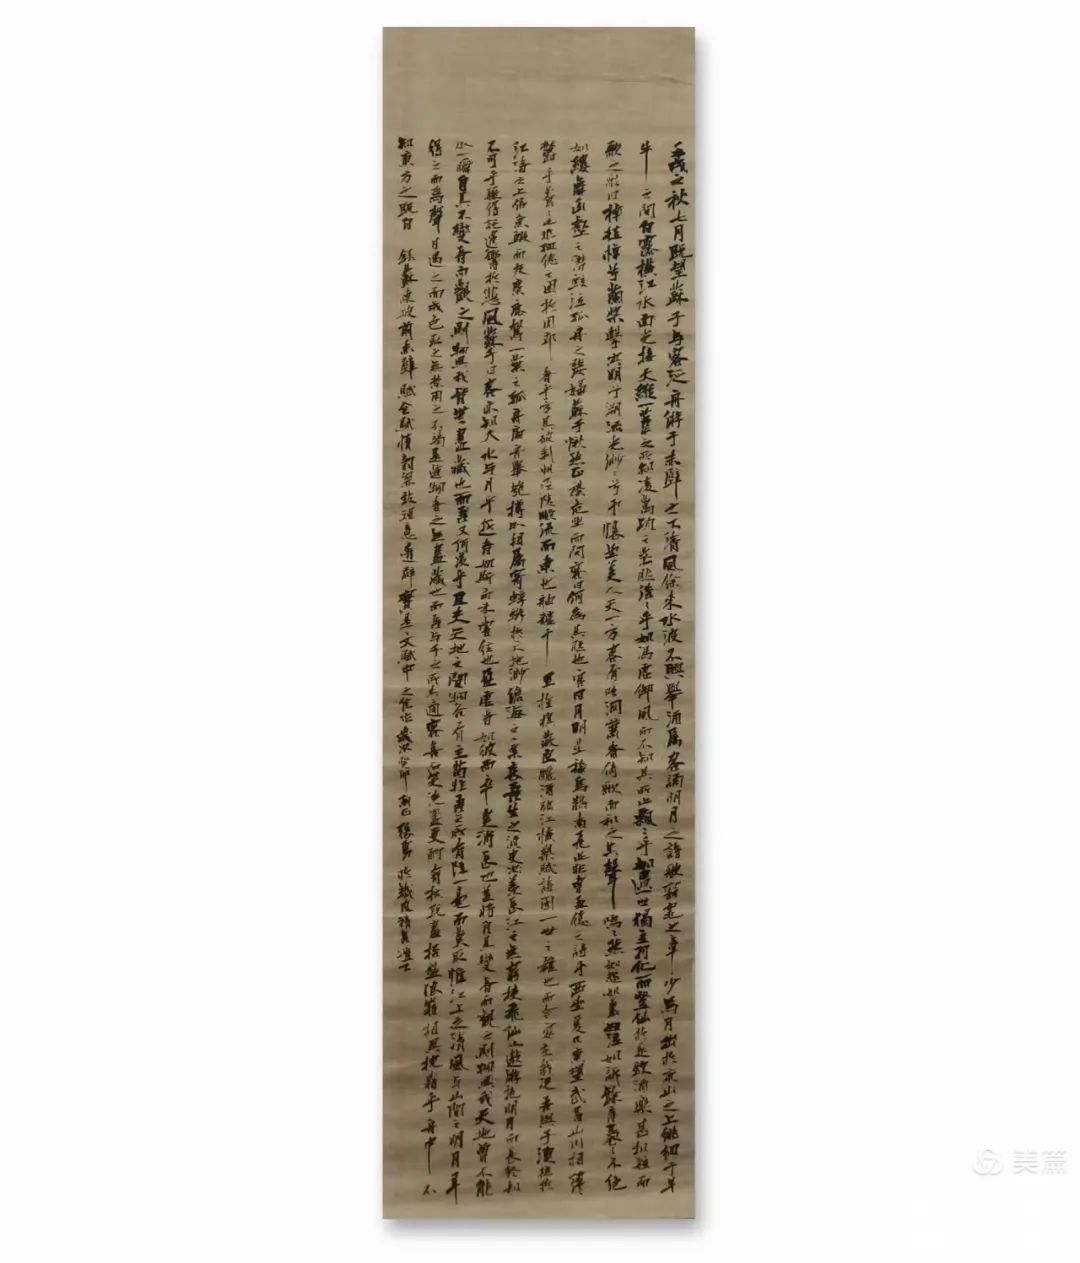 壬戌之秋七月既望蘇子与客泛舟游于赤壁之下清風徐来水波不興舉酒属客誦明月之詩歌窈窕之章少焉月出於東山之上徘徊于斗
牛之間白露橫江水面光接天縱一葦之所如凌萬頃之茫然浩浩乎如馮虛御風而不知其所止飄飄乎如遺世獨立羽化而登仙於是飲酒樂甚扣舷而
歌之歌曰桂棹兮蘭槳擊空明兮溯流光渺渺兮予懷望美人天一方客有吹洞簫者倚歌而和之其聲嗚嗚然如怨如慕如泣如訴餘音裊裊不绝
如縷舞幽壑之潛蛟泣孤舟之嫠婦蘇子愀然正襟危坐而問客曰何為其然也客曰月明星稀烏鵲南飛此非曹孟德之詩乎西望夏口東望武昌山川相繆
鬱乎蒼蒼此非孟德之困於周郎者乎方其破荊州下江陵順流而東也舳艫千里旌旗蔽空釃酒臨江橫槊賦詩固一世之雄也而今安在哉况吾與子漁樵於
江渚之上侶魚蝦而友麋鹿駕一葉之孤舟舉匏樽以相属寄蜉蝣於天地渺滄海之一粟哀吾生之須臾羡長江之無窮挾飛仙以遨游抱明月而長終知
不可乎驟得託遺響於悲風蘇子曰客亦知夫水与月乎逝者如斯而未嘗往也盈虛者如彼而卒莫消長也蓋將自其變者而觀之則天地曾不能
以一瞬自其不變者而觀之則物與我皆無盡藏也而吾又何羡乎且夫天地之間物各有主苟非吾之所有雖一毫而莫取惟江上之清風与山間之明月耳
得之而為聲目遇之而成色取之無禁用之不竭是造物者之無盡藏也而吾与子之所共適客喜而笑洗盞更酌肴核既盡杯盤狼藉相與枕藉乎舟中不
知東方之既白 錄蘇東坡前赤壁賦全賦情韵深致理意透辟實是文賦中之佳作歲次癸卯